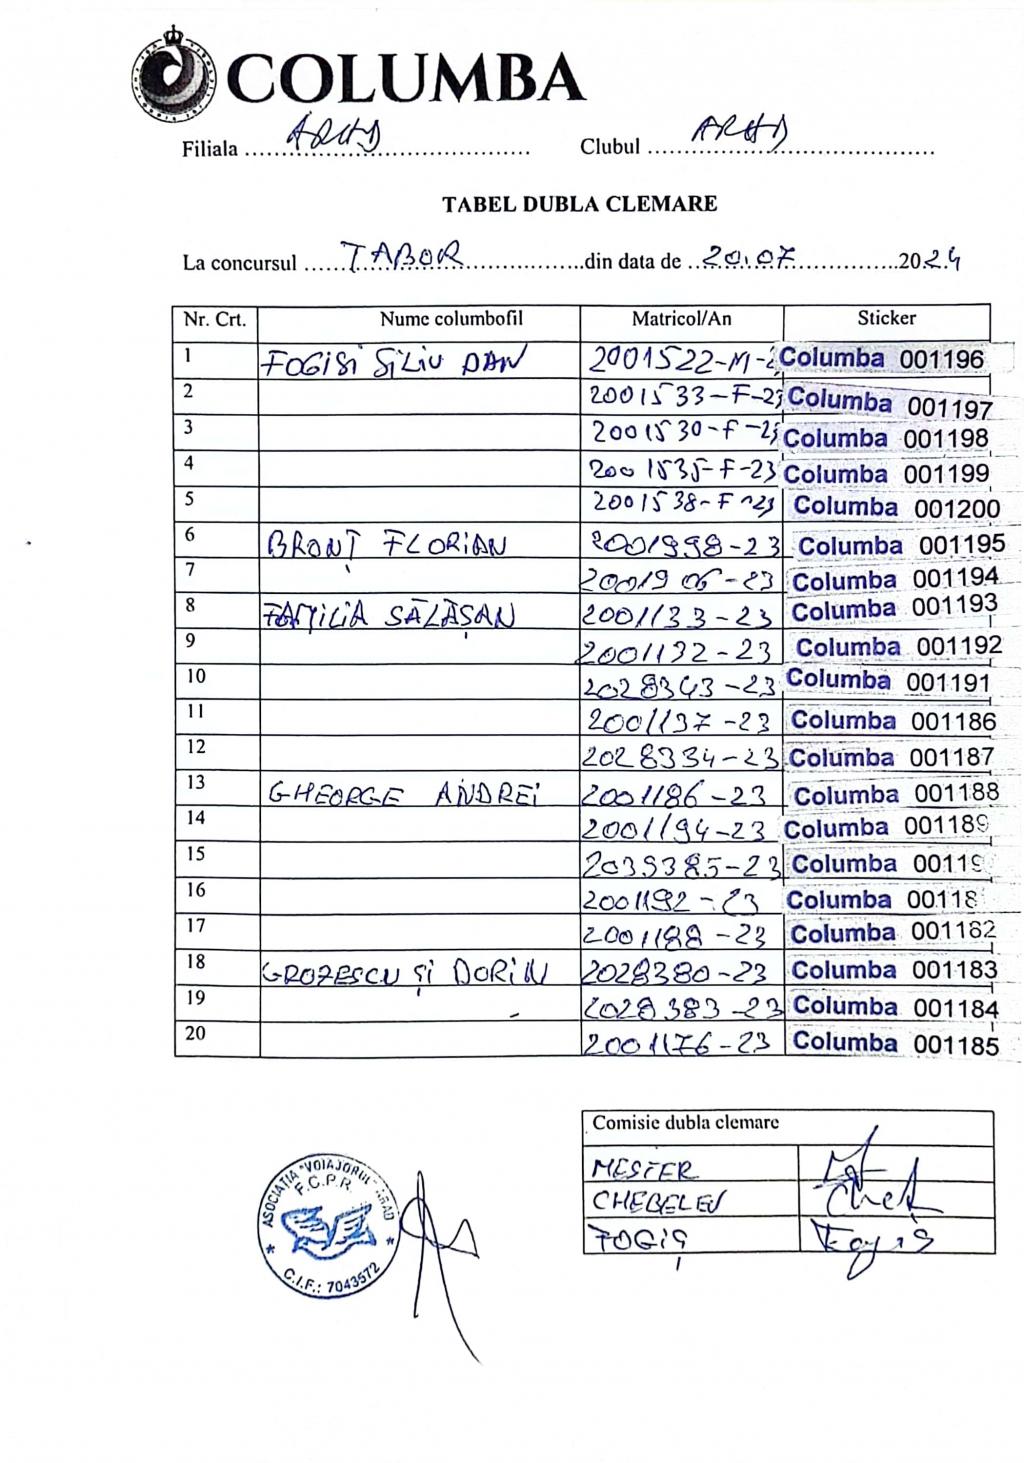 COLUMBA
Filiala ARAD Clubul ARAD
TABEL DUBLA CLEMARE
La concursul TABOR din data de 20.07 2024
Nr. Crt. Nume columbofil Matricol/An Sticker
1 FOGISI SILIU DAN 2001522-M-2 Columba 001196
2 2001533-F-23 Columba 001197
3 2001530-F-23 Columba 001198
4 2001535-F-23 Columba 001199
5 2001538-F-23 Columba 001200
6 BRONȚ FLORIAN 2001998-23 Columba 001195
7 2001906-23 Columba 001194
8 FAMILIA SĂLĂȘAN 2001133-23 Columba 001193
9 2001132-23 Columba 001192
10 2028343-23 Columba 001191
11 2001137-23 Columba 001186
12 2028334-23 Columba 001187
13 GHEORGE ANDREI 2001186-23 Columba 001188
14 2001194-23 Columba 001189
15 2039385-23 Columba 00119
16 2001192-23 Columba 00118
17 2001188-23 Columba 001182
18 GROZESCU ȘI DORIN 2028380-23 Columba 001183
19 2028383-23 Columba 001184
20 2001176-23 Columba 001185
Comisie dubla clemare
MESTER
CHEBELEU
FOGIȘ
ASOCIATIA "VOIAJORUL" ARAD
F.C.P.R.
C.I.F.: 7043572